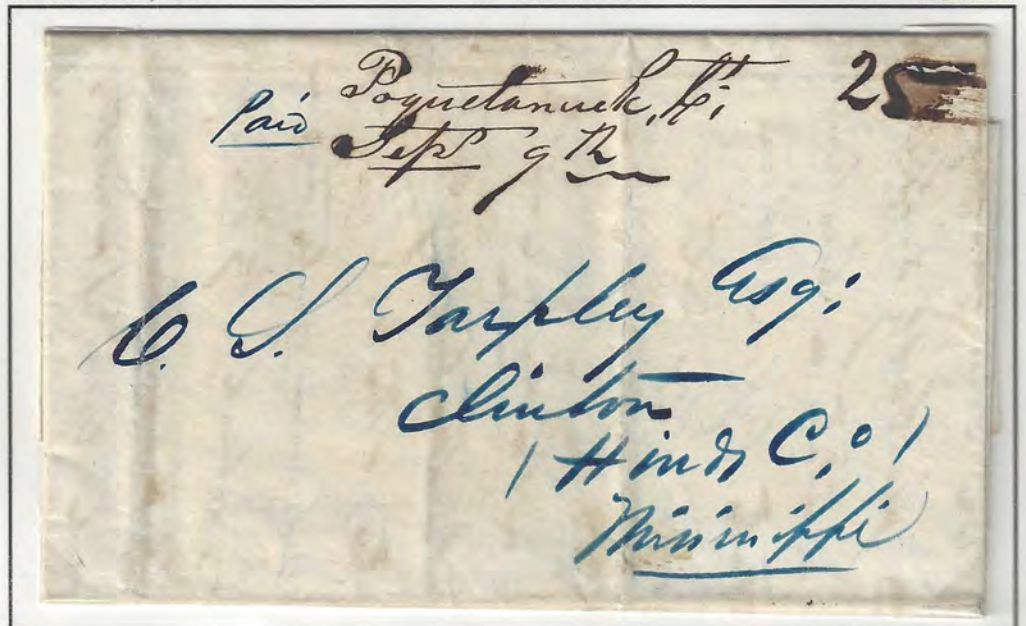 Paid Poquetanuck, Ct; 25
Sept 9th
C. S. Tarpley Esq;
Clinton
(Hinds Co)
Mississippi